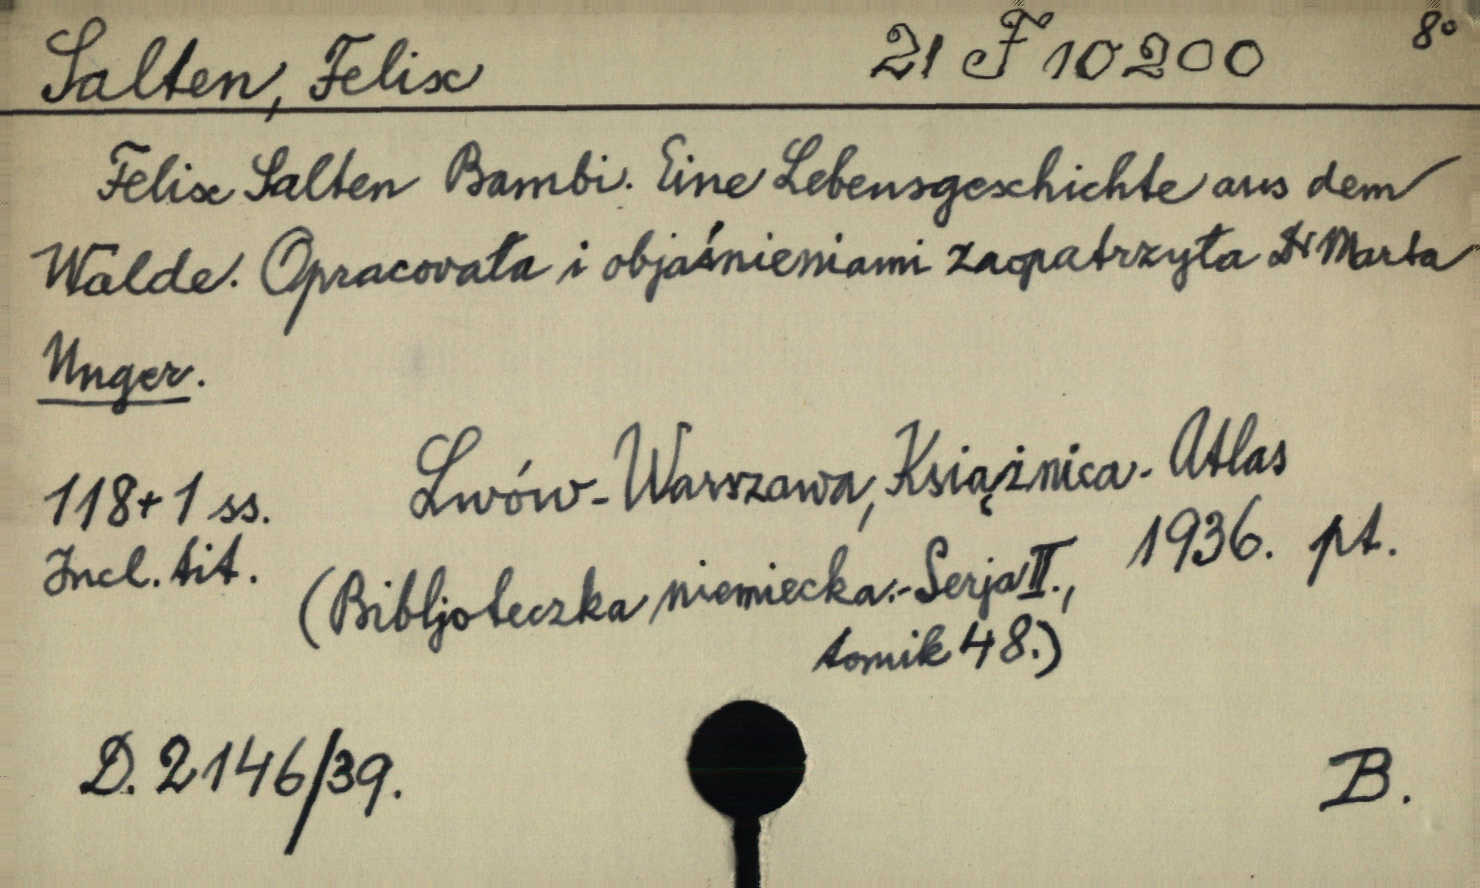 Salten, Felix 21 F 10200 8°
Felix Salten Bambi. Eine Lebensgeschichte aus dem
Walde. Opracowała i objaśnieniami zaopatrzyła Dr Marta
Unger.
Lwów-Warszawa, Książnica-Atlas
118+1 ss. 1936. pt.
Incl. tit. (Bibljoteczka niemiecka.-Serja II.,
tomik 48.)
D. 2146/39. B.